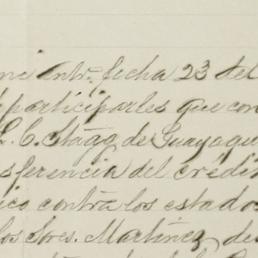 fecha 23 del
participarles que con
L. C. Stagg de Guayaqu
sferencia del crédi
contra los estados
los Sres. Martinez de